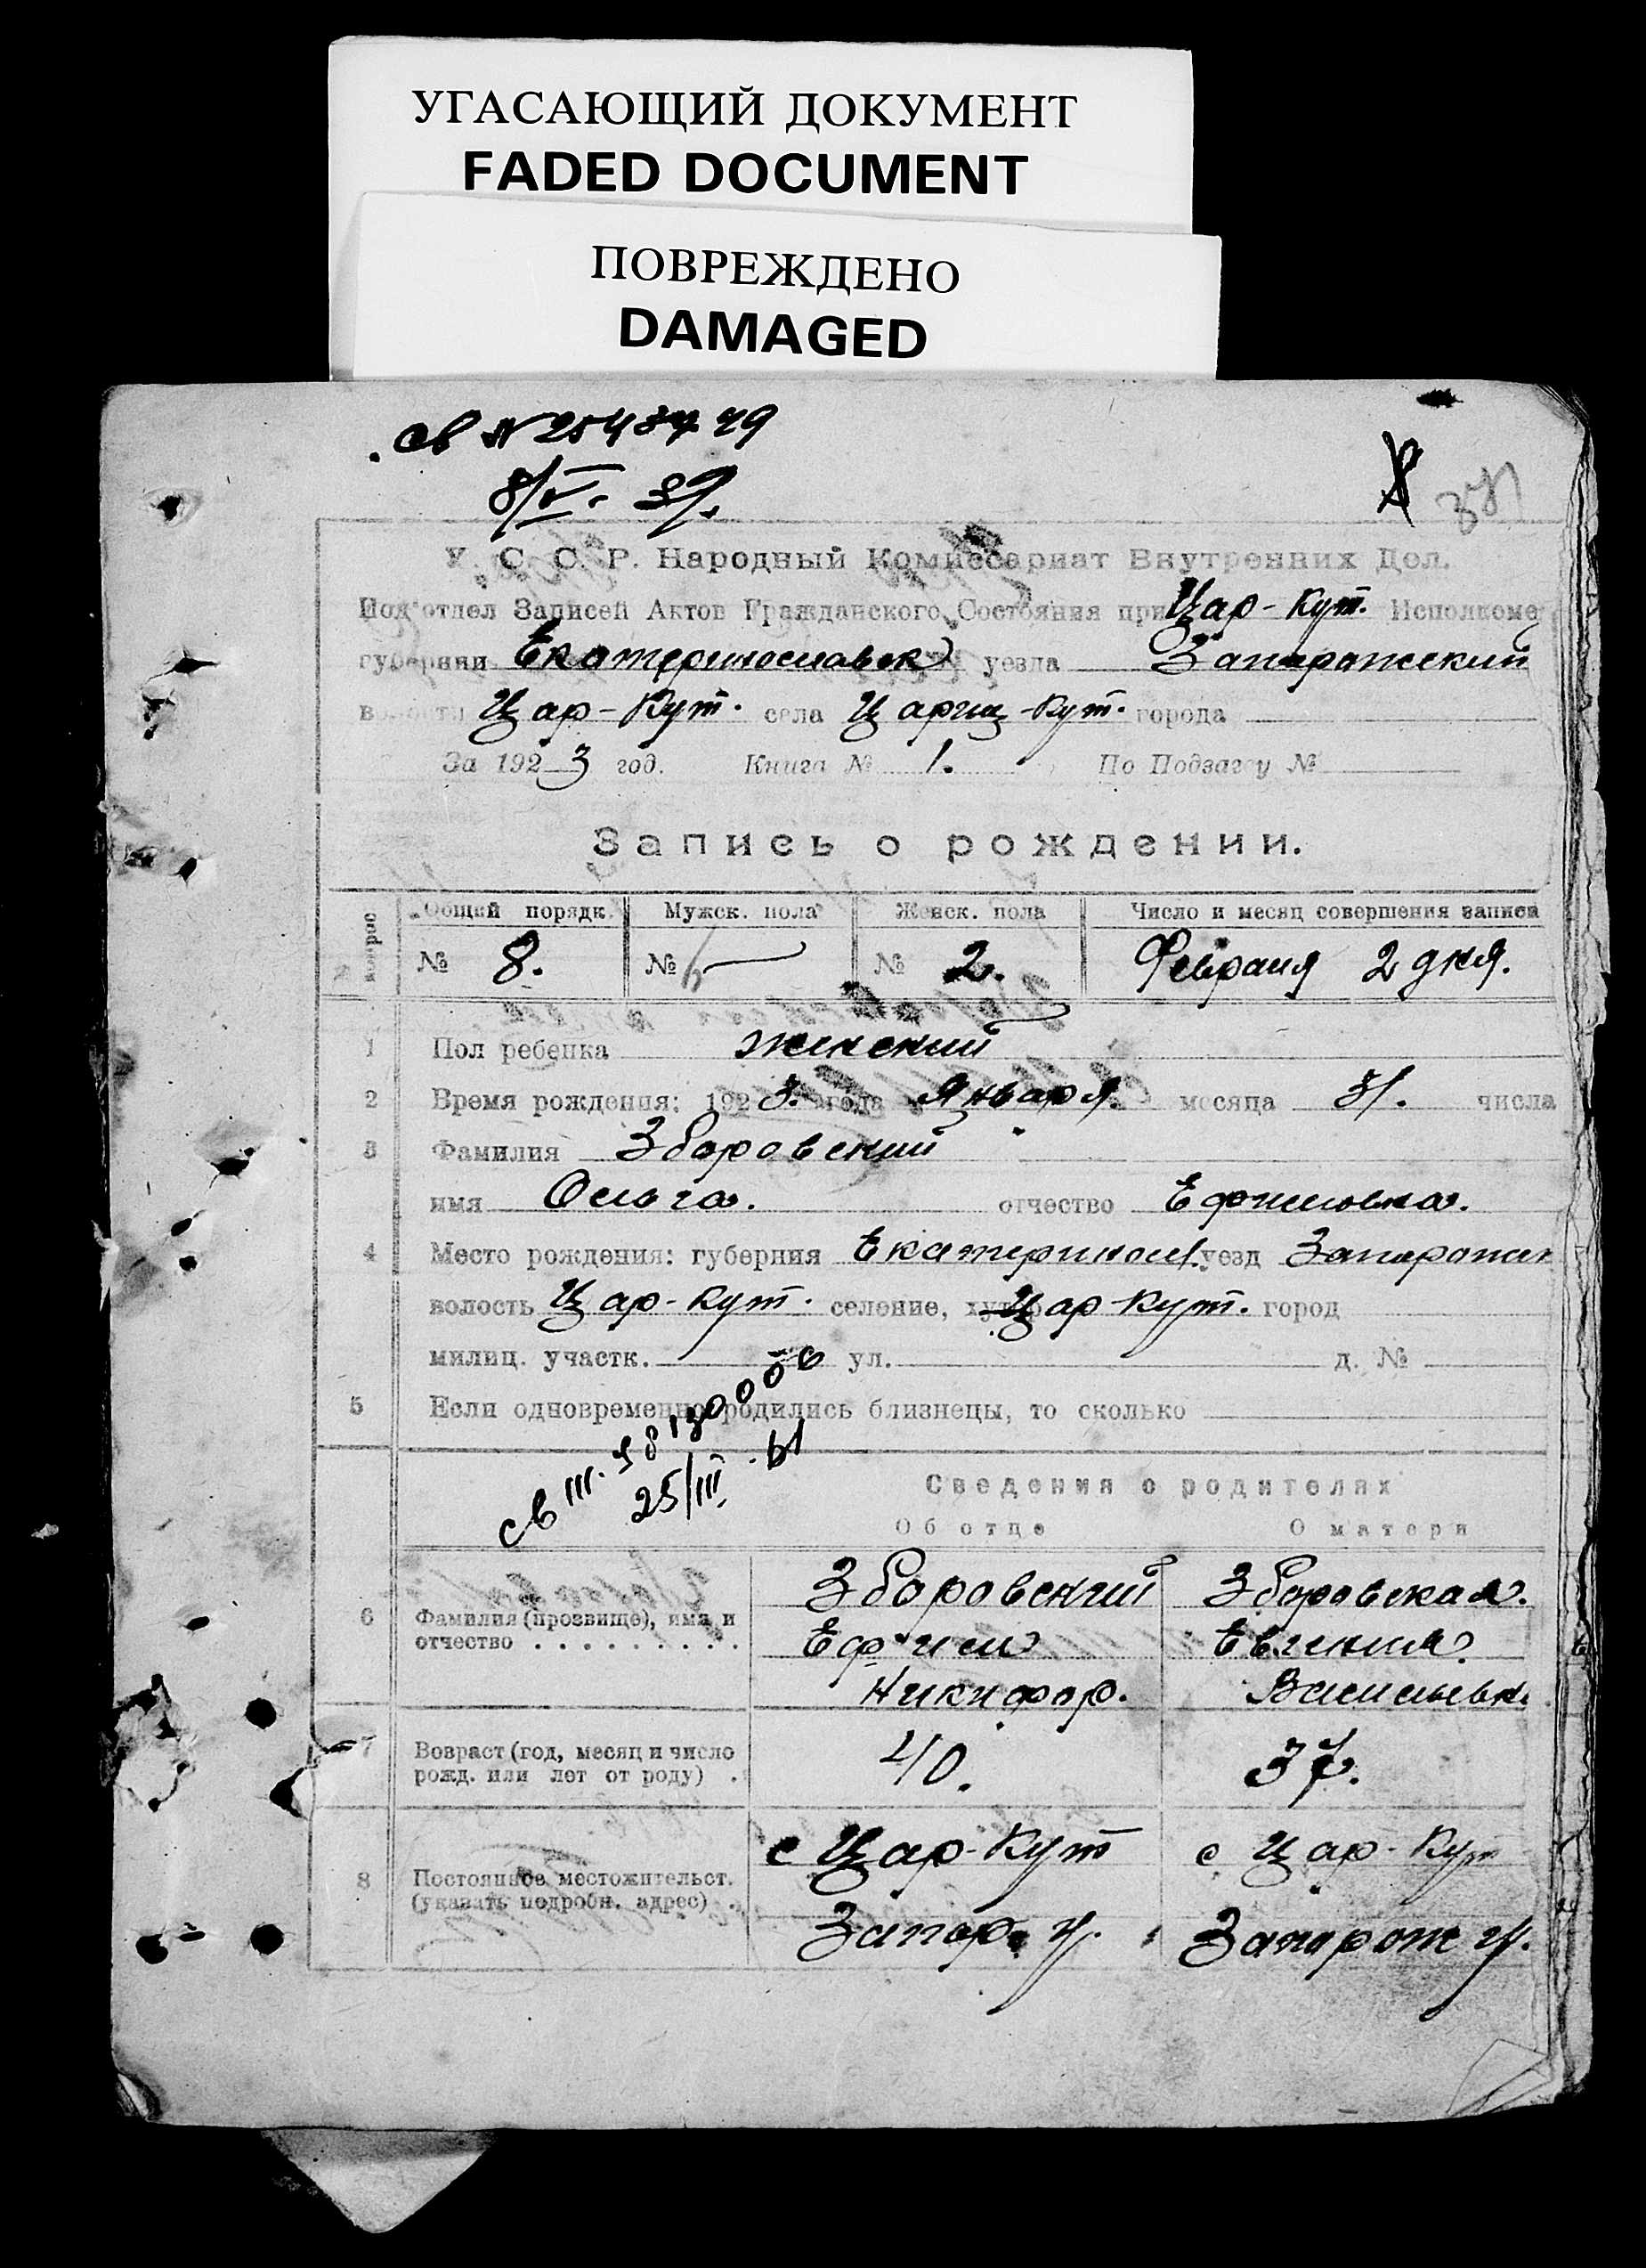 УГАСАЮЩИЙ ДОКУМЕНТ
FADED DOCUMENT
ПОВРЕЖДЕНО
DAMAGED
св №
8/V. 39.
У. С. С. Р. Народный Комиссариат Внутренних Дел.
Под'отдел Записей Актов Гражданского Состояния при Цар-Кут. Исполкоме
губернии Екатеринославск уезда Запорожский
волости Цар-Кут. села Цариц-Кут. города
За 1923 год. Книга № 1. По Подзагсу №
Запись о рождении.
Общий порядк. Мужск. пола Женск. пола Число и месяц совершения записи
№ 8. № № 2. Февраля 2 дня.
1 Пол ребенка женский
2 Время рождения: 1923. года Января. месяца 31. числа
3 Фамилия Зборовский
имя Ольга. отчество Ефимовна.
4 Место рождения: губерния Екатериносл. уезд Запорожск
волость Цар-Кут. селение, Цар-Кут. город
милиц. участк. ул. д. №
5 Если одновременно родились близнецы, то сколько
св III.
25/III. 61
Сведения о родителях
Об отце О матери
6 Фамилия (прозвище), имя и отчество Зборовский Зборовская.
Ефим Евгения
Никифор. Васильевн.
7 Возраст (год, месяц и число рожд. или лет от роду) 40. 37.
8 Постоянное местожительст. (указать подробн. адрес) с Цар-Кут с Цар-Кут
Запор. у. Запорож у.